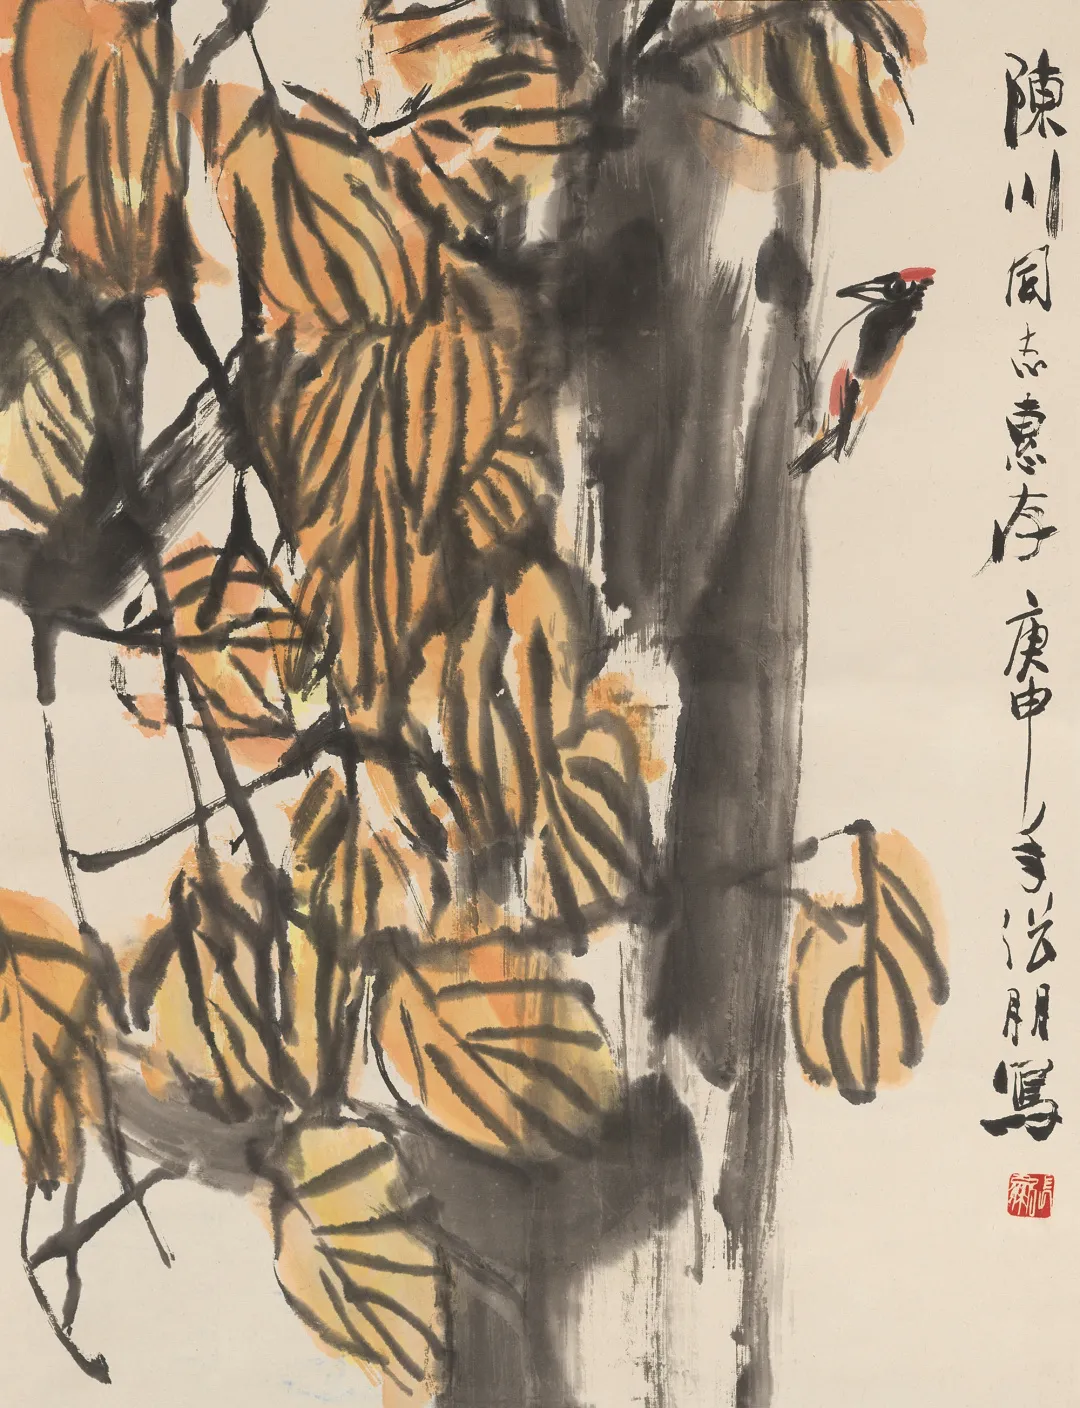 陳川同志惠存庚申年張朋寫